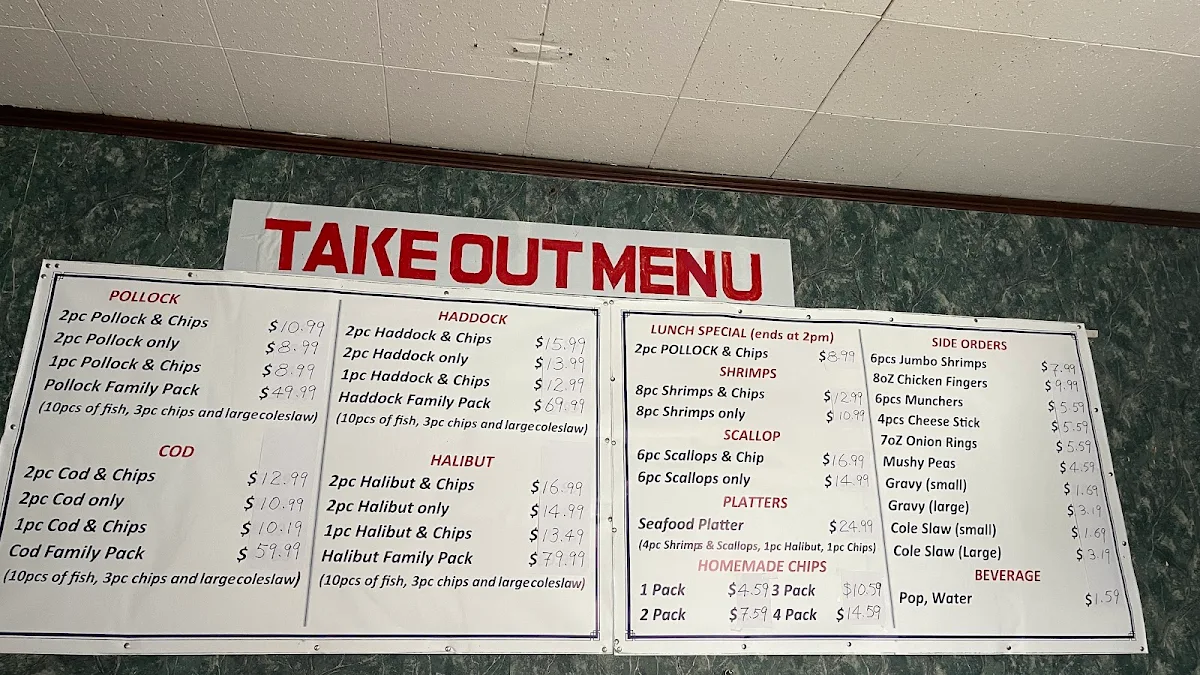 TAKE OUT MENU
POLLOCK
2pc Pollock & Chips $10.99
2pc Pollock only $8.99
1pc Pollock & Chips $8.99
Pollock Family Pack $49.99
(10pcs of fish, 3pc chips and largecoleslaw)
COD
2pc Cod & Chips $12.99
2pc Cod only $10.99
1pc Cod & Chips $10.19
Cod Family Pack $59.99
(10pcs of fish, 3pc chips and largecoleslaw)
HADDOCK
2pc Haddock & Chips $15.99
2pc Haddock only $13.99
1pc Haddock & Chips $12.99
Haddock Family Pack $69.99
(10pcs of fish, 3pc chips and largecoleslaw)
HALIBUT
2pc Halibut & Chips $16.99
2pc Halibut only $14.99
1pc Halibut & Chips $13.49
Halibut Family Pack $79.99
(10pcs of fish, 3pc chips and largecoleslaw)
LUNCH SPECIAL (ends at 2pm)
2pc POLLOCK & Chips $8.99
SHRIMPS
8pc Shrimps & Chips $12.99
8pc Shrimps only $10.99
SCALLOP
6pc Scallops & Chip $16.99
6pc Scallops only $14.99
PLATTERS
Seafood Platter $24.99
(4pc Shrimps & Scallops, 1pc Halibut, 1pc Chips)
HOMEMADE CHIPS
1 Pack $4.59 3 Pack $10.59
2 Pack $7.59 4 Pack $14.59
SIDE ORDERS
6pcs Jumbo Shrimps $7.99
8oZ Chicken Fingers $9.99
6pcs Munchers $5.59
4pcs Cheese Stick $5.59
7oZ Onion Rings $5.59
Mushy Peas $4.59
Gravy (small) $1.69
Gravy (large) $3.19
Cole Slaw (small) $1.69
Cole Slaw (Large) $3.19
BEVERAGE
Pop, Water $1.59